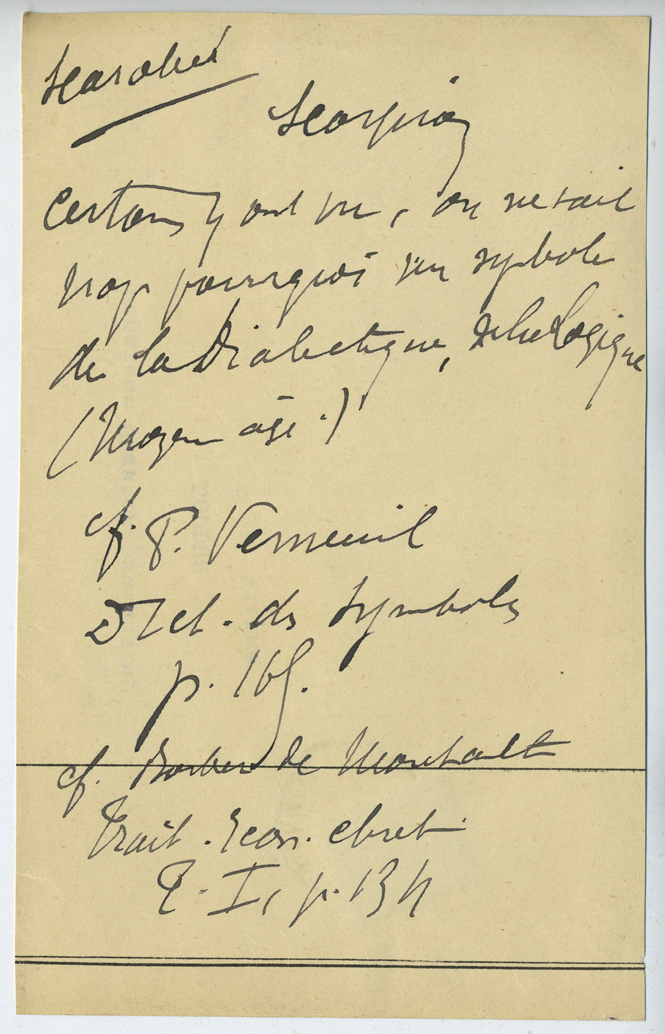 Scarabée
Scorpion
Certains y ont vu, on ne sait
trop pourquoi un symbole
de la Dialectique, de la Logique
(Moyen âge.)
cf. P. Verneuil
Dict. des Symboles
p. 165.
cf. Barbier de Montault
Trait. Icon. chret.
T. I, p. 134